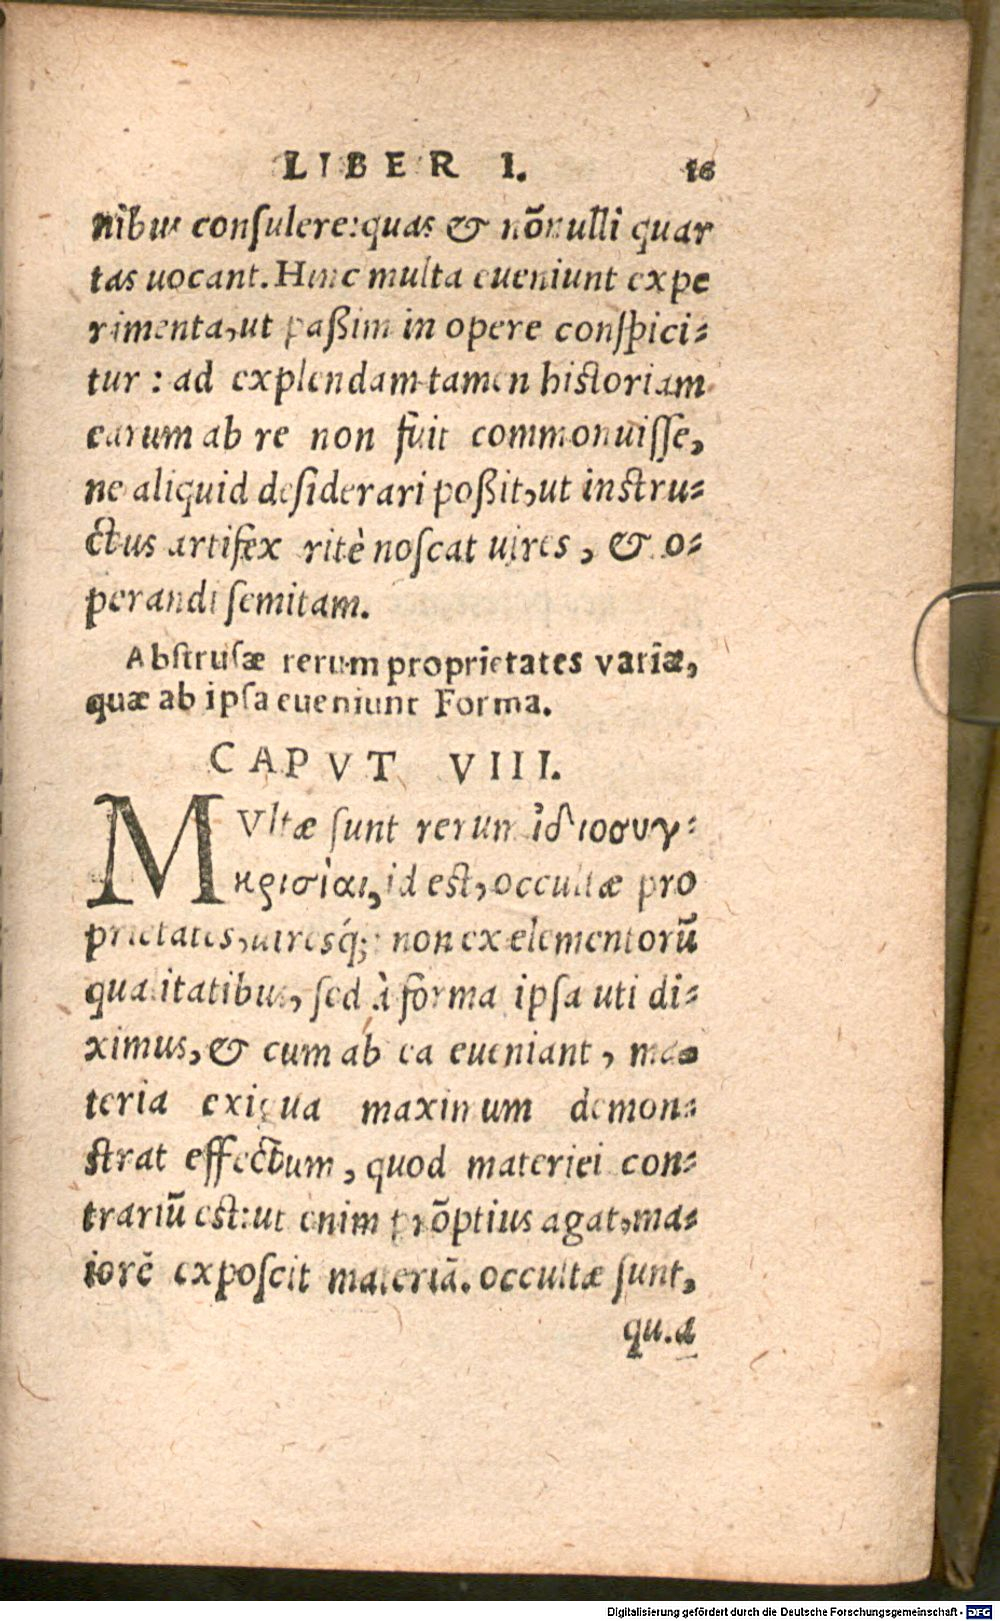 LIBER I. 16
nibus consulere: quas & nõnulli quar
tas uocant. Hinc multa eueniunt expe
rimenta, ut paßim in opere conspici-
tur : ad explendam tamen historiam
earum ab re non fuit commonuisse,
ne aliquid desiderari poßit, ut instru-
ctus artifex ritè noscat uires, & o-
perandi semitam.
Abstrusæ rerum proprietates variæ,
quæ ab ipsa eueniunt Forma.
CAPVT VIII.
MVltæ sunt rerum ἰδιοσυγ-
κρισίαι, id est, occultæ pro
prietates, uiresq́;: non ex elementorũ
qualitatibus, sed à forma ipsa uti di-
ximus, & cum ab ea eueniant, ma-
teria exigua maximum demon-
strat effectum, quod materiei con-
trariũ est: ut enim prõptius agat, ma-
iorẽ exposcit materiã. occultæ sunt,
qu.a
Digitalisierung gefördert durch die Deutsche Forschungsgemeinschaft - DFG